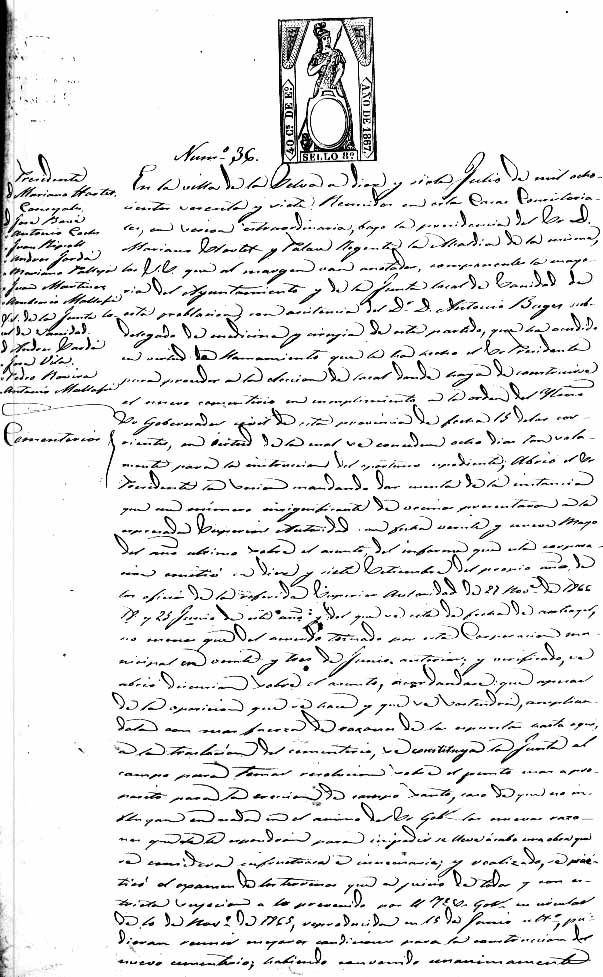 40 Cs. DE Eº
AÑO DE 1867.
SELLO 8º
Numº 36.
Presidente
D. Mariano Hostet
Concejales
D. José Boné
Antonio
Juan Ripoll
Andres Jordá
Mariano
Juan Martinez
Ambrosio
de la Junta lo
cal de Sanidad
D. Andres
José Vila
Pedro
Antonio
Cementerios
En la villa de la Selva a diez y siete Julio de mil ocho
cientos sesenta y siete; Reunidos en esta Casa Consistoria
les, en sesion extraordinaria, bajo la presidencia del Sr. D.
Mariano Hostet y Palau Regente la Alcaldia de la misma,
los S.S. que al margen van anotados, componentes la mayo
ria del Ayuntamiento y de la Junta local de Sanidad de
esta poblacion, con asistencia del Dr. D. Antonio sub
delegado de medicina y cirugia de este partido, que ha acudido
en virtud de llamamiento que le ha hecho el Sr. Presidente
para proceder a la eleccion de local donde haya de construirse
el nuevo cementerio en cumplimiento a la orden del Ylmo
Sr. Gobernador civil de esta provincia de fecha 15 de los cor
rientes, en virtud de la cual se conceden ocho dias tan sola
mente para la instruccion del oportuno espediente; Abrió el Sr.
Presidente la sesion mandando dar cuenta de la instancia
que un número insignificante de vecinos presentaron a la
espresada Superior Autoridad en fecha veinte y nueve Mayo
del año ultimo sobre el asunto, del informe que esta corpora
cion emitió en diez y siete Setiembre del propio año, de
los oficios de la referida Superior Autoridad de 27 Nove. de 1866
17 y 25 Junio de este año; y del que se
no menos que del acuerdo tomado por esta Corporacion mu
nicipal en veinte y tres de Junio anterior; y verificado, se
abrió discusion sobre el asunto, acordandose que apesar
de la oposicion que se hace y que se sostendrá, amplian
dola con mas fuerza de razones de la espuesta hasta aqui,
a la traslacion del cementerio, se constituya la Junta al
campo para tomar resolucion sobre el punto mas apro
posito para la ereccion de campo santo, caso de que no in
fluyan en nada en el animo del Sr. Gobr. las nuevas razo
nes que se le espondran para impedir se lleve á cabo una obra que
se considera infructuosa é innecesaria; y realizado, se prac
ticó el exámen de los terrenos que a juicio de todos y con es
tricta sugecion a lo prevenido por el Sr. Gobr. en circular
de 10 de Nove. de 1865, reproducida en 15 de Junio pu
dieran reunir mejores condiciones para la construccion del
nuevo cementerio; habiendo convenido unanimamente